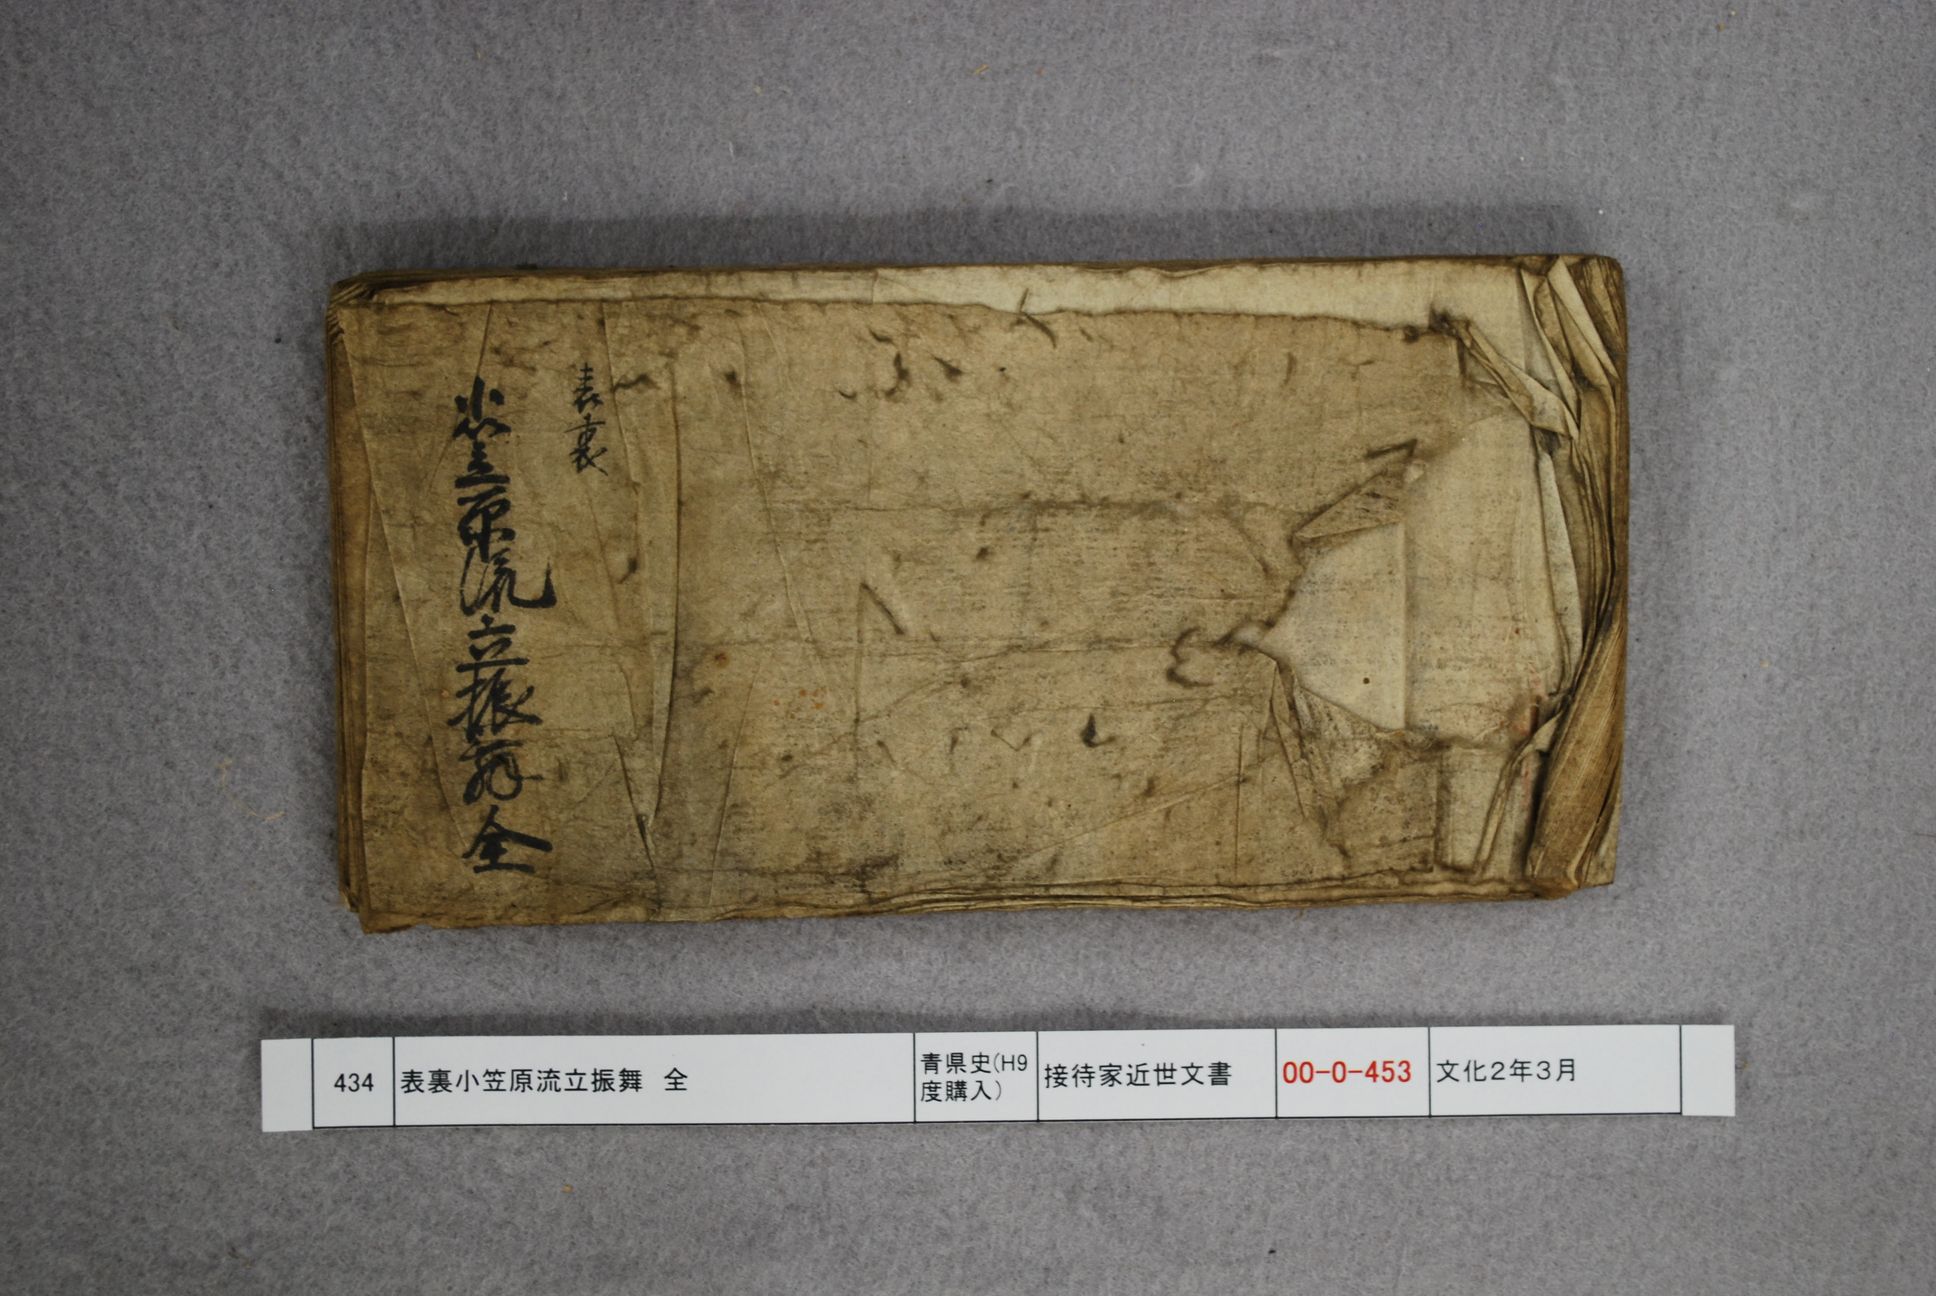 表裏
小笠原流立振舞全
434
表裏小笠原流立振舞　全
青県史(H9
度購入)
接待家近世文書
00-0-453
文化2年3月